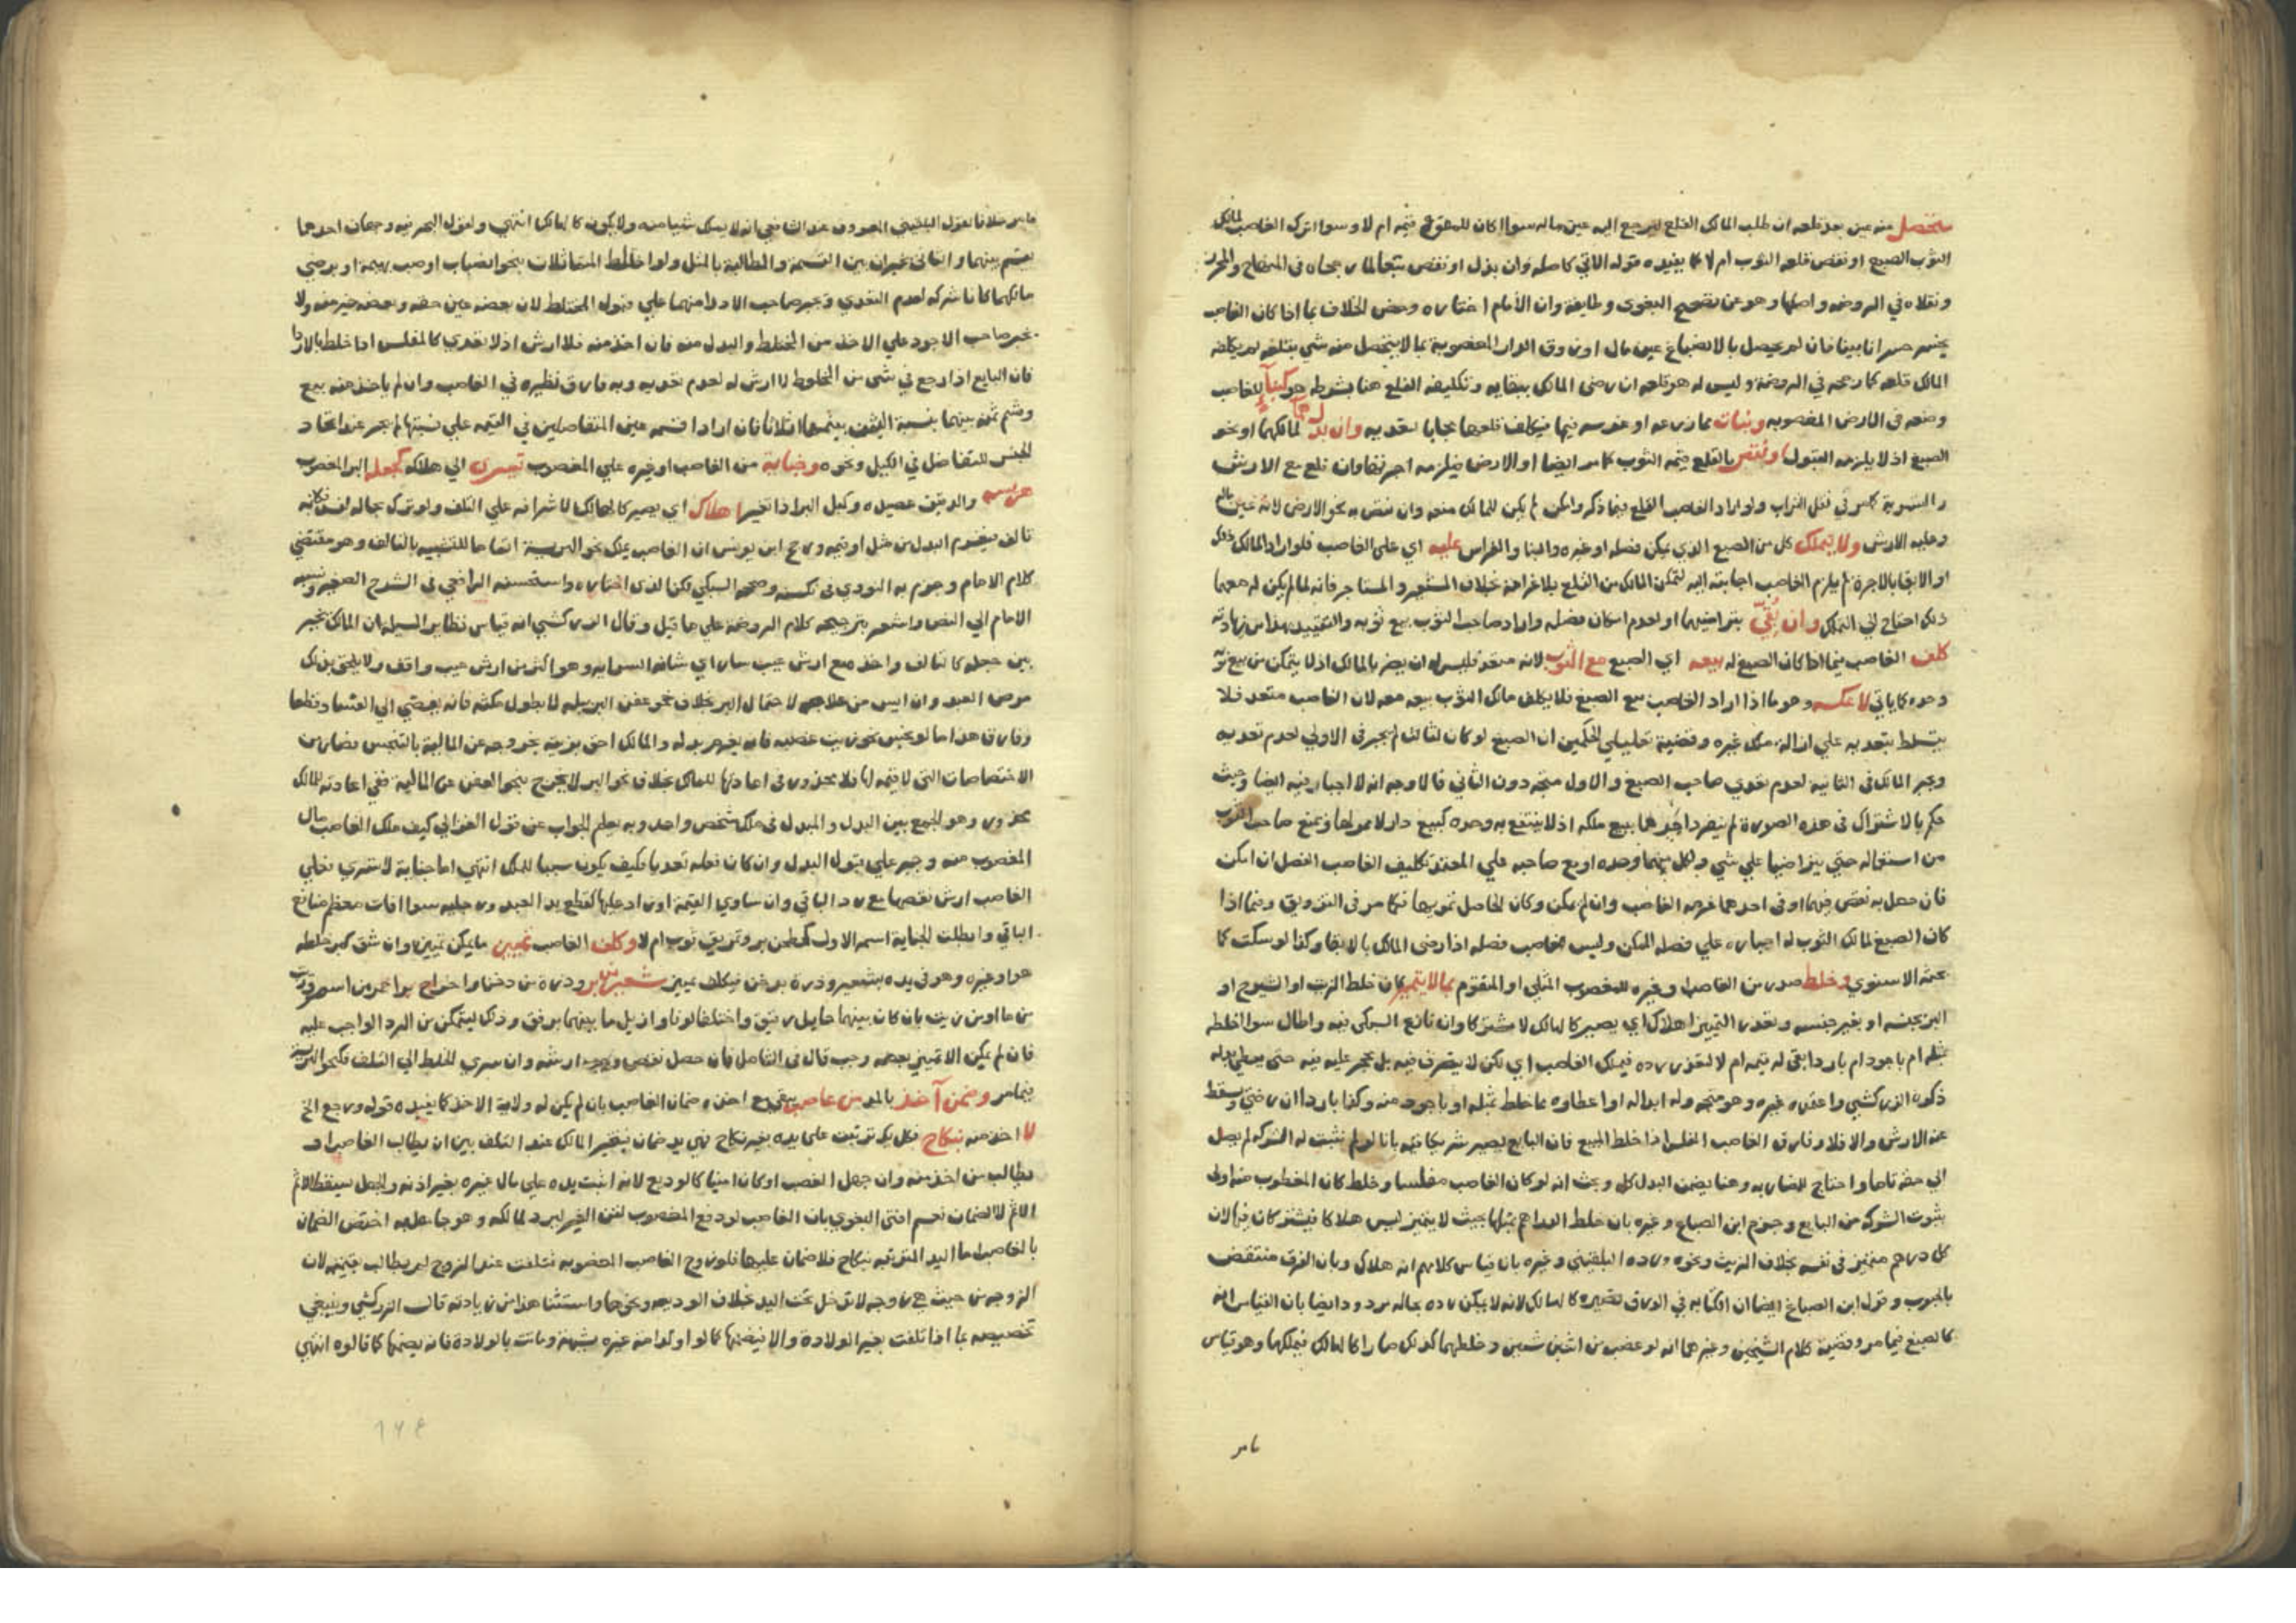 متحصل منه عين بعد قلعه ان طلب المالك القلع ليرجع اليه عين ماله سوا اكان للمقلوع قيمة ام لا وسوا اترك الغاصب لمالك
الثوب الصبغ او نقص قلعه الثوب ام لا كما يفيده قوله الاتي كاصله وان بذل او نقص تبعا لما رجحاه في المنهاج والمحرر
ونقلاه في الروضة واصلها وهو عن تصحيح البغوي وطايفة وان الامام اختاره وخص الخلاف بما اذا كان الغاصب
يخسر خسرانا بينا فان لم يحصل بالانصباغ عين مال او زوق الدار المغصوبة بما لا يتحصل منه شي بقلعه لم يكلفه
المالك قلعه كما رجحه في الروضة وليس له هو قلعه ان رضى المالك ببقايه وتكليفه القلع هنا بشرطه هو كبناء للغاصب
وضعه في الارض المغصوبه ونبات مما زرعه او غرسه فيها فيكلف قلعهما مجانا لتعديه وان بذلا لمالكهما او نحو
الصبغ اذ لا يلزمه القبول او نقص بالقلع قيمة الثوب كما مر ايضا او الارض فيلزمه اجرتها وان قلع مع الارش
والتسوية كما مر في نقل التراب ولو اراد الغاصب القلع فيما ذكر وامكن لم يكن للمالك منعه وان نقص به نحو الارض لانه عين ماله
وعليه الارش ولا يتملك كل من الصبغ الذي يمكن فصله او غيره والبنا والغراس عليه اي على الغاصب فلو اراد المالك ذلك
او الابقا بالاجرة لم يلزم الغاصب اجابته اليه لتمكن المالك من القلع بلا غرامة بخلاف المستعير والمستاجر فانه لما لم يكن له معهما
ذلك احتاج الى التملك وان بقي بتراضيهما او لعدم امكان فصله واراد صاحب الثوب بيع ثوبه والتقييد بهذا من زيادته
كلف الغاصب فيما اذا كان الصبغ له بيعه اي الصبغ مع الثوب لانه متعد فليس له ان يضر بالمالك اذ لا يتمكن من بيع ثوبه
وحده كما ياتي لا عكسه وهو ما اذا اراد الغاصب بيع الصبغ فلا يكلف مالك الثوب بيعه معه لان الغاصب متعد فلا
يتسلط بتعديه علي ازالة ملك غيره وقضية تعليلي الحكمين ان الصبغ لو كان لثالث لم يجبر في الاولي لعدم تعديه
وجبر المالك في الثانية لعدم تعدي صاحب الصبغ والاول متجه دون الثاني فالاوجه انه لا اجبار فيه ايضا وحيث
حكم بالاشتراك في هذه الصورة لم ينفرد احدهما ببيع ملكه اذ لا ينتفع به وحده كبيع دار لا ممر لها ويمنع صاحب الثوب
من استعماله حتى يتراضيا علي شي ولكل منهما وحده او بيع صاحبه علي المعتمد تكليف الغاصب الفصل ان امكن
فان حصل به نقص فيهما او في احدهما غرمه الغاصب وان لم يمكن وكان الحاصل تمويها فكما مر في التزويق وفيما اذا
كان الصبغ لمالك الثوب له اجباره علي فصله الممكن وليس للغاصب فصله اذا رضى المالك بالابقا وكذا لو سكت كما
بحثه الاسنوي وخلط صدر من الغاصب او غيره للمغصوب المثلي او المتقوم بما لا يتميز كان خلط الزيت او الشيرج او
البر بجنسه او بغير جنسه وتعذر التمييز اهلاك اي يصير كالهالك لا مشتركا وان نازع السبكي فيه واطال سوا اخلطه
بمثله ام باجود ام باردا بقى له قيمة ام لا لتعذر رده فيملك الغاصب اي لكن لا يتصرف فيه بل يحجر عليه فيه حتى يعطي بدله
ذكره الزركشي واعتمده غيره وهو متجه وله ابداله او اعطاوه مما خلط بمثله او باجود منه وكذا باردا ان رضي وسقط
عنه الارش والا فلا وفارق الغاصب المفلس اذا خلط المبيع فان البايع يصير شريكا فيه بانا لو لم نثبت له الشركة لم يصل
الي حقه تاما واحتاج للمضاربه وهنا يضمن البدل كل وبحث انه لو كان الغاصب مفلسا وخلط كان المغصوب منه اولى
بثبوت الشركة من البايع وجزم ابن الصباغ وغيره بان خلط الدراهم بمثلها بحيث لا يتميز ليس هلاكا فيشتركان فيها لان
كل درهم متميز في نفسه بخلاف الزيت ونحوه ورده البلقيني وغيره بان قياس كلامهم انه هلاك وبان الفرق منتقض
بالحبوب وقول ابن الصباغ ايضا ان الكتابة في الورق تصيره كالهالك لانه لا يمكن رده بحاله مردود ايضا بان القياس انه
كالصبغ فيما مر وقضية كلام الشيخين وغيرهما انه لو غصب من اثنين شيين وخلطهما كذلك صارا كالهالك فيملكهما وهو قياس
مامر
مامر خلافا لقول البلقيني المعروف عند الشافعي انه لا يملك شيا منه ولا يكون كالهالك انتهي ولقول البحر فيه وجهان احدهما
يقسم بينهما والثاني يخيران بين القسمة والمطالبة بالمثل ولو اختلط المتماثلات بنحو انصباب او صب بهيمة او برضى
مالكهما كانا شركه لعدم التعدي ويجبر صاحب الاردا منهما علي قبول المختلط لان بعضه عين حقه وبعضه خير منه ولا
يجبر صاحب الاجود علي الاخذ من المختلط والبدل منه فان اخذ منه فلا ارش اذ لا تعدي كالمفلس اذا خلط بالاردا
فان البايع اذا رجع في شي من المخلوط لا ارش له لعدم تعديه وبه فارق نظيره في الغاصب وان لم ياخذ منه بيع
وقسم ثمنه بينهما بنسبة القيمة فان ارادا قسمة عين المتفاضلين في القيمة علي نسبتها لم يجز عند اتحاد
الجنس للتفاضل في الكيل ونحوه وجناية من الغاصب او غيره علي المغصوب تسري الي هلاكه كجعله البر المغصوب
هريسه والدقيق عصيده وكبل البر اذا تغير اهلاك اي يصير كالهالك لاشرافه علي التلف ولو ترك بحاله لفسد فكانه
تالف فيغرم البدل من مثل او قيمه ورجح ابن يونس ان الغاصب يملك نحو الهريسة اتماما للتشبيه بالتالف وهو مقتضي
كلام الامام وجزم به النووي في نكته وصححه السبكي لكن الذي اختاره واستحسنه الرافعي في الشرح الصغير ونسبه
الامام الي النص واشعر بترجيحه كلام الروضة علي ما قيل وقال الزركشي انه قياس نظاير المسيلة ان المالك يخير
بين جعله كالتالف واخذه مع ارش عيب سار اي شانه السرايه وهو اكثر من ارش عيب واقف ولا يلحق بذلك
مرض العبد وان ايس من علاجه لاحتمال البر بخلاف نحو عفن البر ببله لا بطول مكثه فانه يفضي الي الفساد قطعا
وفارق هذا ما لو نجس نحو زيت غصبه فانه يغرم بدله والمالك احق بزيته بخروجه عن المالية بالتنجس فصار من
الاختصاصات التي لا قيمة لها فلا محذور في اعادتها للمالك بخلاف نحو البر لا يخرج بنحو العفن عن المالية ففي اعادته للمالك
محذور وهو الجمع بين البدل والمبدل في ملك شخص واحد وبه يعلم الجواب عن قول الغزالي كيف ملك الغاصب مال
المغصوب منه وجبر علي قبول البدل وان كان فعله تعديا فكيف يكون سببا للملك انتهي اما جناية لا تسري فعلي
الغاصب ارش نقصها مع رد الباقي وان ساوي القيمة او زاد عليها كقطع يد العبد ورجليه سوا افات معظم منافع
الباقي وابطلت الجناية اسمه الاول كطحن بر وتمزيق ثوب ام لا وكلف الغاصب تمييز ما يمكن تمييزه وان شق كبر خلطه
هو او غيره وهو في يده بشعير وذرة بدخن فيكلف تمييز شعير ببر وذرة من دخن واخراج بر احمر من اسمر وزيت
من ما او من زيت بان كان بينهما حايل رقيق واختلفا لونا وازيل ما بينهما برفق وذلك ليتمكن من الرد الواجب عليه
فان لم يمكن الا تمييز بعضه وجب قال في الشامل فان حصل نقص وجب ارشه وان سري الخلط الي التلف فكنحو الهريسة
فيما مر وضمن آخذ بالمد من غاصب حتى مع ضمان الغاصب بان لم يكن له ولاية الاخذ كما يفيده قوله ورجع الخ
لا اخذ منه نكاح فكل يد ترتبت على يده بغير نكاح فهي يد ضمان فيتخير المالك عند التلف بين ان يطالب الغاصب او
يطالب من اخذ منه وان جهل الغصب او كان امينا كالوديع لانه اثبت يده علي مال غيره بغير اذنه والجهل يسقط الاثم
لا الضمان نعم افتى البغوي بان الغاصب لو دفع المغصوب لقن الغير ليرده لمالكه وهو جاهل به اختص الضمان
بالغاصب اما اليد المترتبه بنكاح فلا ضمان عليها فلو زوج الغاصب المغصوبه فتلفت عند الزوج لم يطالب بقيمتها لان
الزوجه من حيث هي زوجه لا تدخل تحت اليد بخلاف الوديعه ونحوها واستثنا هذا من زيادته قال الزركشي وينبغي
تخصيصه بما اذا تلفت بغير الولادة والا فيضمنها كما لو اولد امة غيره بشبهة وماتت بالولادة فانه يضمنها كما قالوه انتهي